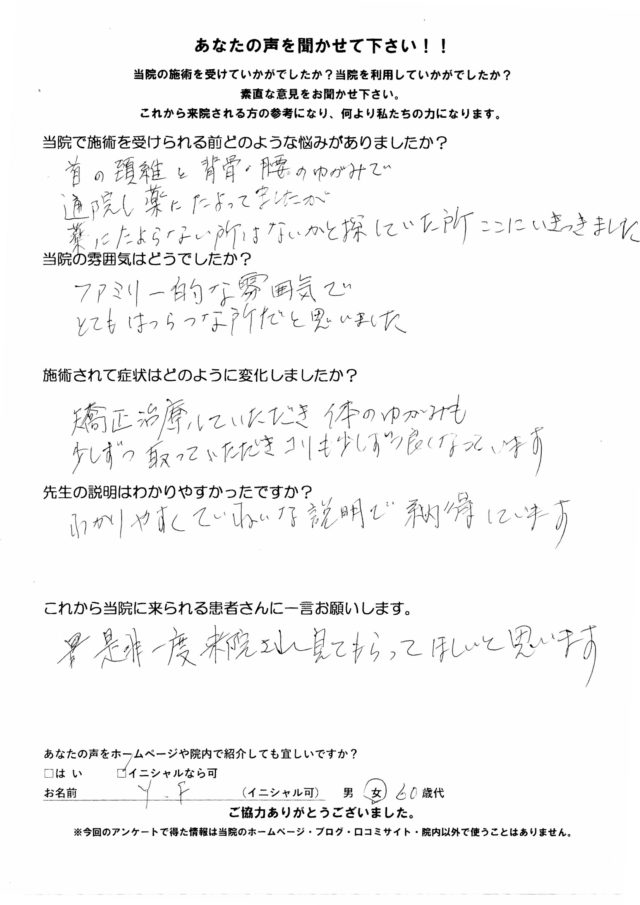 あなたの声を聞かせて下さい！！
当院の施術を受けていかがでしたか？当院を利用していかがでしたか？
素直な意見をお聞かせ下さい。
これから来院される方の参考になり、何より私たちの力になります。
当院で施術を受けられる前どのような悩みがありましたか？
首の頚椎と背骨・腰のゆがみで
通院し薬にたよってきましたが
薬にたよらない所はないかと探していた所ここにいきつきました
当院の雰囲気はどうでしたか？
ファミリー的な雰囲気で
とてもはつらつな所だと思いました
施術されて症状はどのように変化しましたか？
矯正治療していただき体のゆがみも
少しずつ取っていただきコリも少しずつ良くなっています
先生の説明はわかりやすかったですか？
わかりやすくていねいな説明で納得しています
これから当院に来られる患者さんに一言お願いします。
是非一度来院され見てもらってほしいと思います
あなたの声をホームページや院内で紹介しても宜しいですか？
□はい □イニシャルなら可
お名前 Y.F （イニシャル可） 男 女 60歳代
ご協力ありがとうございました。
※今回のアンケートで得た情報は当院のホームページ・ブログ・口コミサイト・院内以外で使うことはありません。